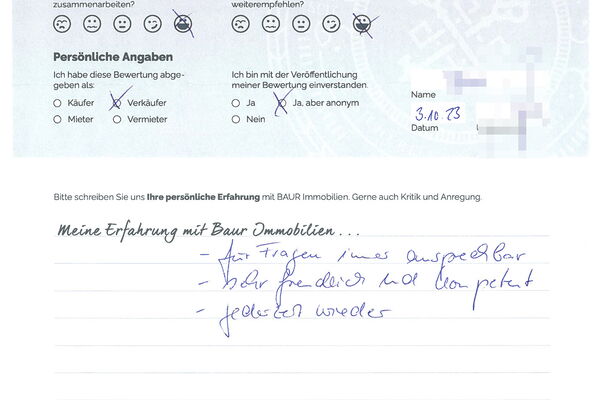 zusammenarbeiten?
weiterempfehlen?
Persönliche Angaben
Ich habe diese Bewertung abge-
geben als:
Käufer
Verkäufer
Mieter
Vermieter
Ich bin mit der Veröffentlichung
meiner Bewertung einverstanden.
Ja
Ja, aber anonym
Nein
Name
3.10.23
Datum
Bitte schreiben Sie uns Ihre persönliche Erfahrung mit BAUR Immobilien. Gerne auch Kritik und Anregung.
Meine Erfahrung mit Baur Immobilien ...
- für Fragen immer ansprechbar
- sehr freundlich und kompetent
- jederzeit wieder